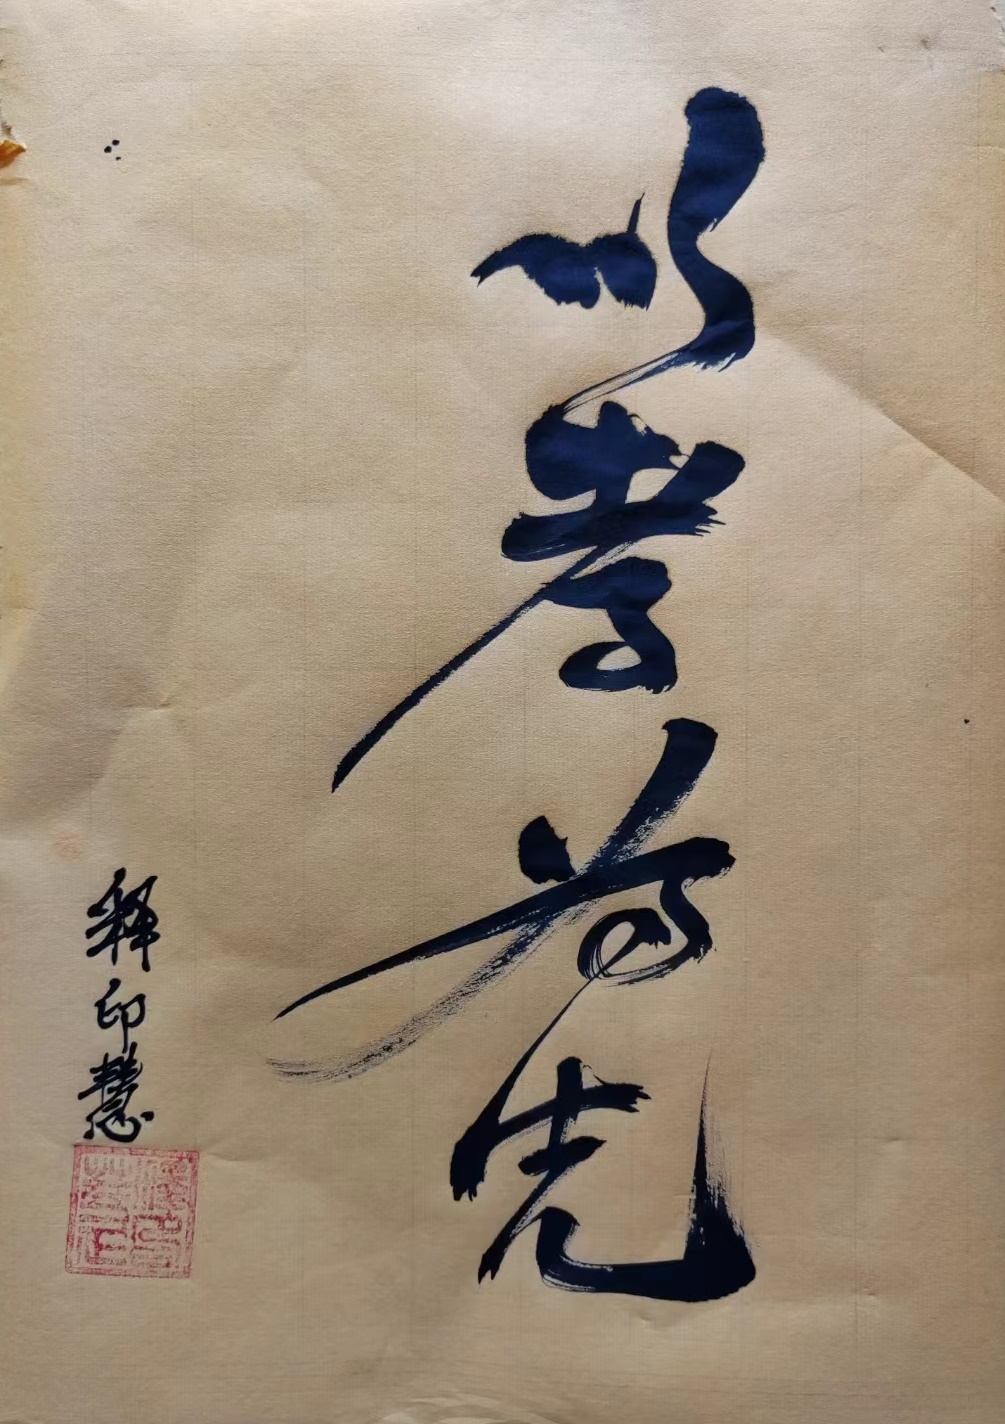 以孝为先
释印慧